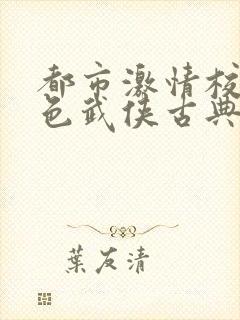 都市激情校
色武侠古典
葉友清